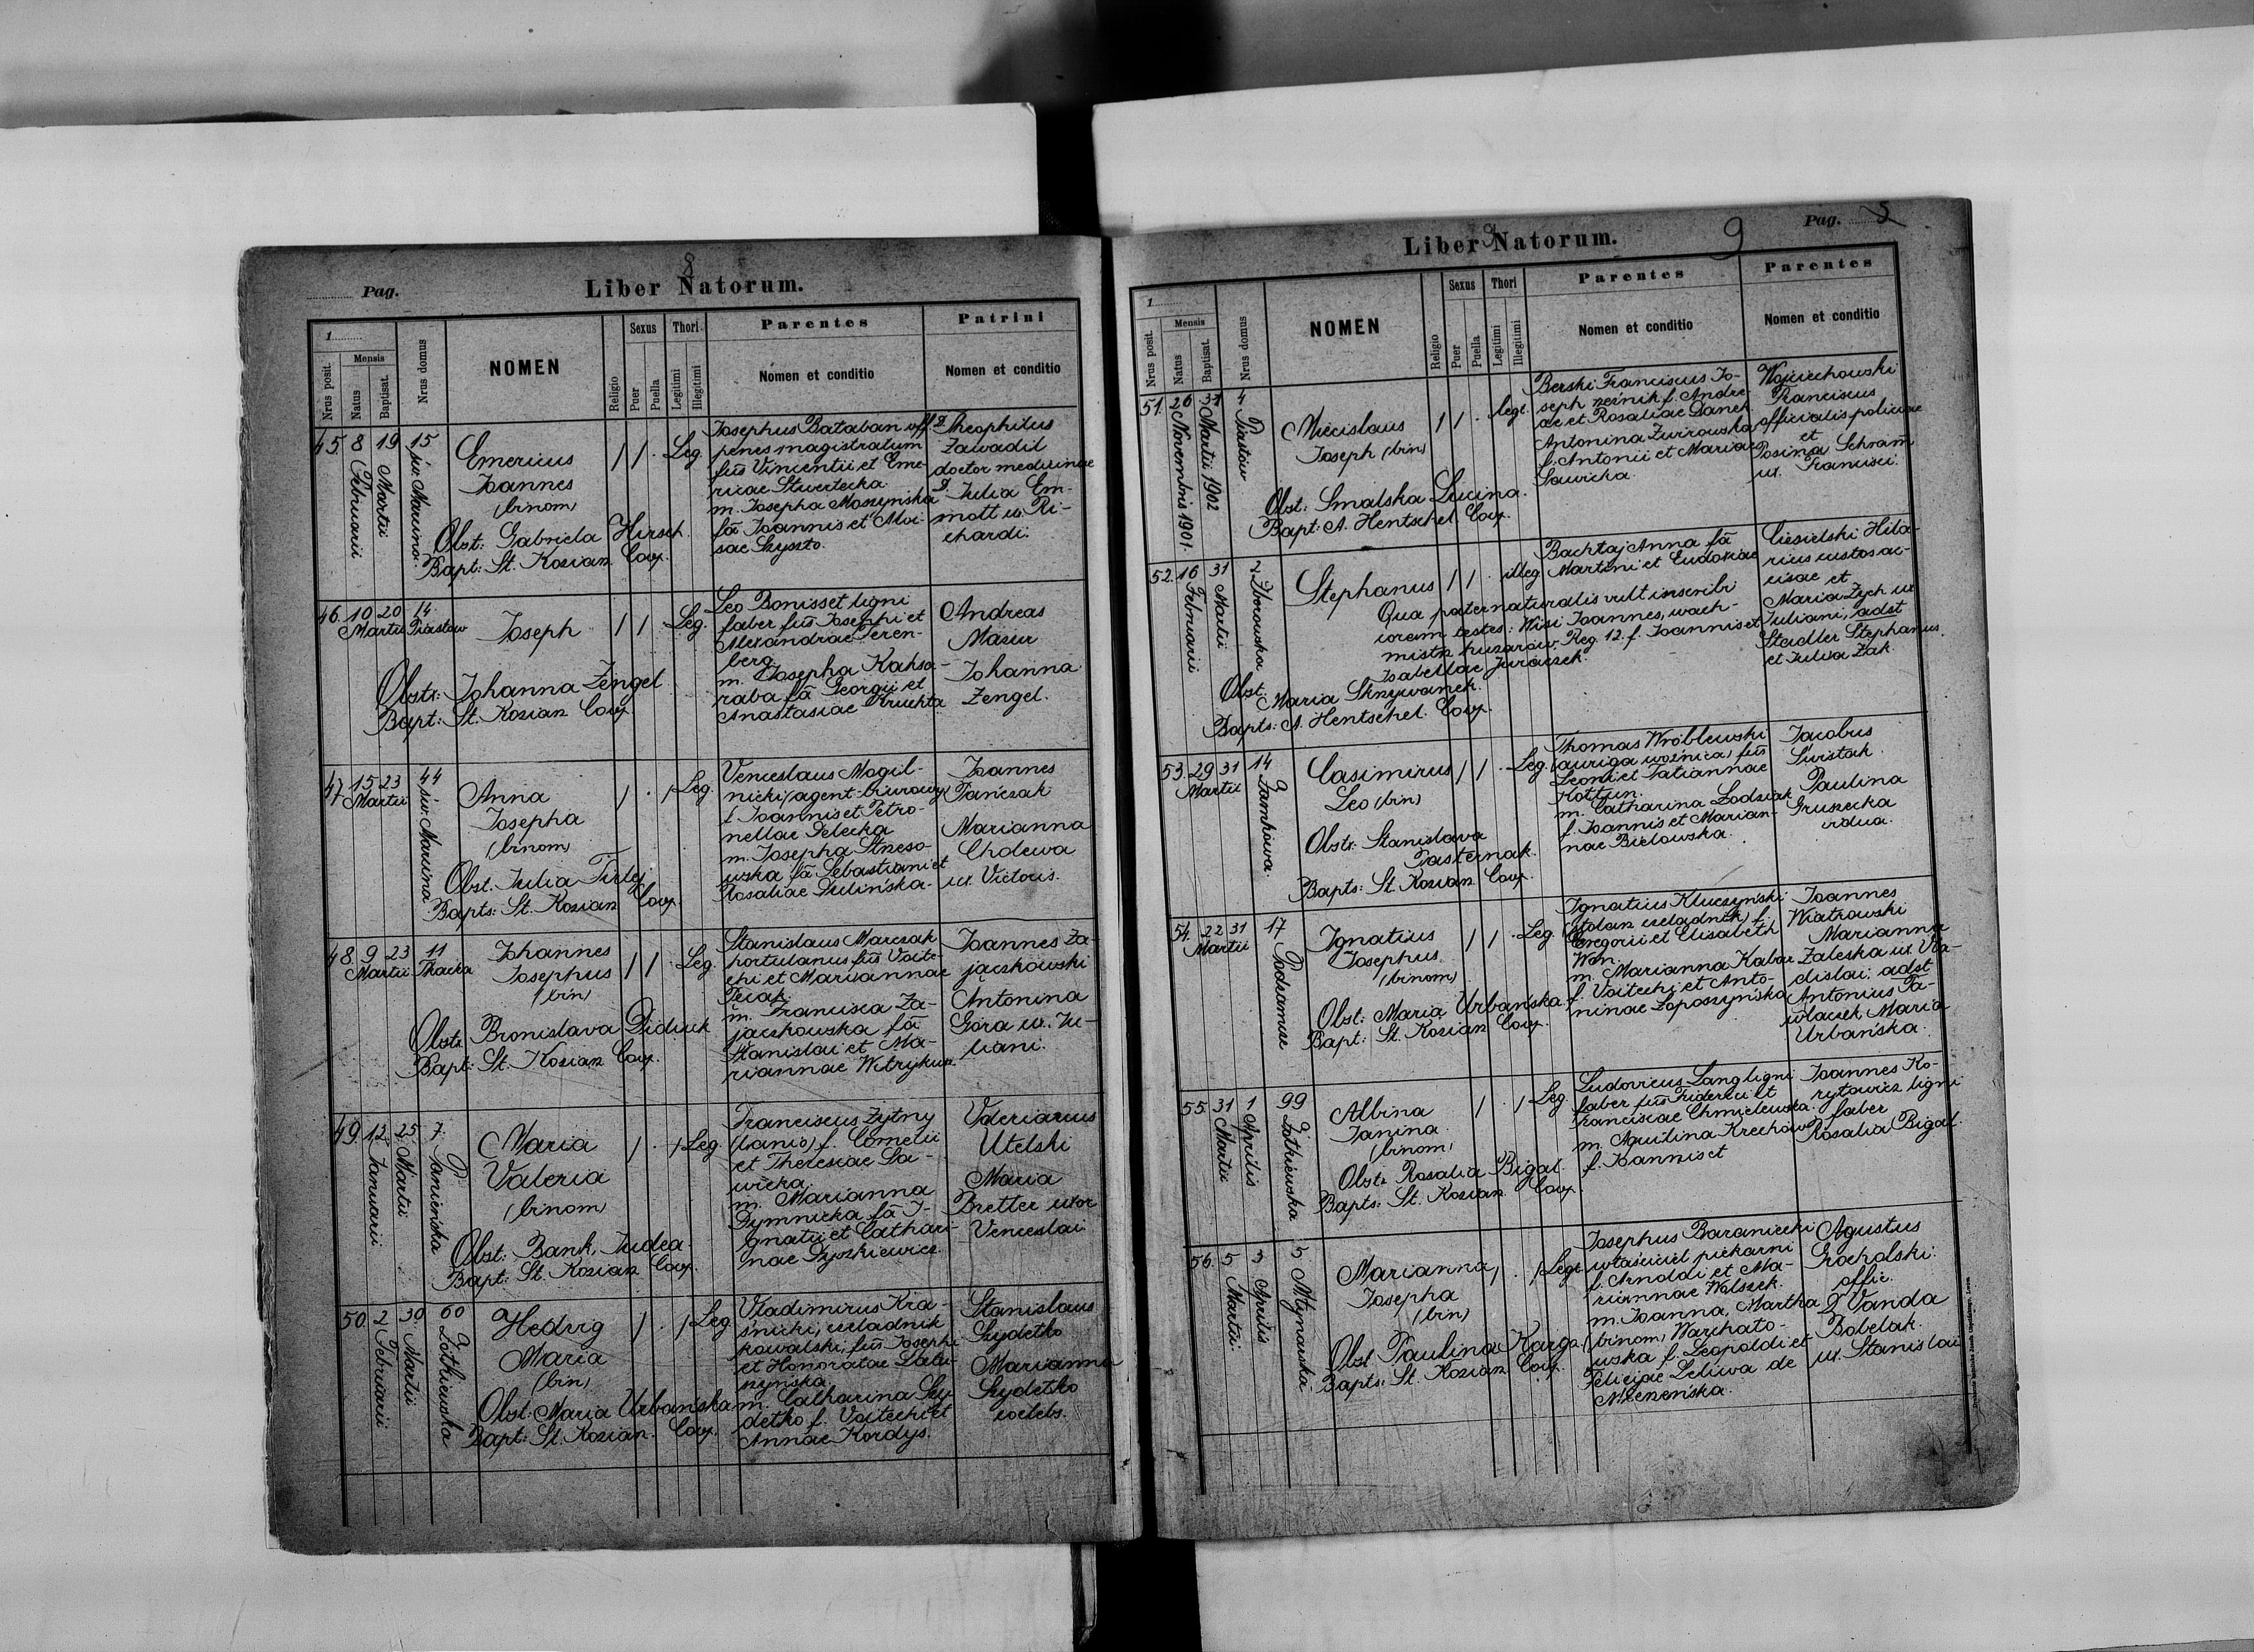 Pag.
8
Liber Natorum.
1
Nrus posit.
Mensis
Natus
Baptisat.
Nrus domus
NOMEN
Religio
Sexus
Puer
Puella
Thori
Legitimi
Illegitimi
Parentes
Nomen et conditio
Patrini
Nomen et conditio
45. 8 19 15
Februarii
Martii
św. Marcina
Emericus
Joannes
(binom)
Obst: Gabriela Hirsch.
Bapt: St. Kozian Coop.
Leg.
Josephus Bataban off.
penes magistratum
fils Vincentii et Eme-
ricae Stwertecka
m. Josepha Moszyńska
fa Joannis et Aloi-
sae Szyszto.
Theophilus
Zawadil
doctor medicinae
Julia Em-
mott ux Ri-
chardi.
46. 10 20 14
Martii Piastow
Joseph
Obstr: Johanna Zengel
Bapt: St. Kozian Coop.
Leg.
Leo Bonisset ligni
faber fils Josephi et
Alexandrae Teren-
berg
m. Josepha Kahsa-
raba fa Georgii et
Anastasiae Kruchta
Andreas
Mazur
Johanna
Zengel.
47. 15 23 44
Martii św. Marcina
Anna
Josepha
(binom)
Obst. Julia Tirlej
Bapts: St. Kozian Coop.
Leg.
Venceslaus Mogil-
nicki (agent biurowy)
f. Joannis et Petro-
nellae Telecka
m. Josepha Strzeso-
wska fa Sebastiani et
Rosaliae Dulińska.
Joannes
Pańczak
Marianna
Cholewa
ux. Victoris.
48. 9 23 11
Martii Tkacka
Johannes
Josephus
(bin)
Obstr Bronislava Didiuk
Bapt: St. Kozian Coop.
Leg.
Stanislaus Marczak
hortulanus fils Voite-
chi et Mariannae
Peciak
m. Francisca Za-
jączkowska fa
Stanislai et Ma-
riannae Witrykus.
Joannes Za-
jączkowski
Antonina
Góra ux. Ju-
liani.
49. 12 25 7
Januarii
Martii
Panieńska
Maria
Valeria
(binom)
Obst: Bank, Judea.
Bapt: St. Kozian Coop.
Leg
Franciscus Żytny
(lanio) f. Cornelii
et Theresiae Sa-
wicka
m. Marianna
Dymnicka fa I-
gnatii et Cathari-
nae Dyszkiewicz.
Valerianus
Utelski
Maria
Bretter uxor
Venceslai
50. 2 30 60
Februarii
Martii
Żółkiewska
Hedvig
Maria
(bin)
Obst: Maria Urbańska
Bapt: St. Kozian. Coop.
Leg
Vladimirus Kra-
śnicki, czeladnik
kowalski, fils Josephi
et Honoratae Latu-
szyńska
m. Catharina Szy-
detko f. Voitechi et
Annae Kordys.
Stanislaus
Szydetko
Marianna
Szydetko
coelebs.
Pag. 5
9
9
Liber Natorum.
1
Nrus posit.
Mensis
Natus
Baptisat.
Nrus domus
NOMEN
Religio
Sexus
Puer
Puella
Thori
Legitimi
Illegitimi
Parentes
Nomen et conditio
Parentes
Nomen et conditio
51. 26 31 4
Novembris 1901.
Martii 1902
Piastów
Miecislaus
Joseph (bin)
Obst: Smalska Lucina.
Bapt: A. Hentschel Coop.
legt.
Berski Franciscus Jo-
seph rzeźnik f. Andre-
ae et Rosaliae Danek
Antonina Żwirowska
f. Antonii et Mariae
Sawicka.
Wojciechowski
Franciscus
officialis policiae
et
Posima Schram
ux. Francisci.
52. 16 31 2
Februarii
Martii
Zborowska
Stephanus
illeg
Bachtaj Anna fa
Martini et Eudoxiae
Qua pater naturalis vult inscribi
coram testes: Wisi Joannes, wach-
mistrz huzarów Reg. 12. f. Joannis et
Isabellae Juraczek.
Obst. Maria Skrzywanek.
Bapts: A. Hentschel. Coop.
Ciesielski Hila-
rius custos ac-
cisae et
Maria Zych ux
Juliani, adst
Stadler Stephanus
et Julia Żak.
53. 29 31 14
Martii
Zamkowa.
Casimirus
Leo (bin)
Obstr: Stanislava
Pasternak.
Bapts: St. Kozian Coop.
Leg.
Thomas Wróblewski
(auriga woźnica) fils
Leoni et Tatiannae
Kottun.
m. Catharina Łodziak
f. Joannis et Marian-
nae Bielowska.
Jacobus
Świstak.
Paulina
Gruszecka
vidua.
54. 22 31 17
Martii
Podzamcze
Ignatius
Josephus
(binom)
Obst: Maria Urbańska.
Bapt: St. Kozian Coop.
Leg.
Ignatius Kluczyński
(stolarz czeladnik) f.
Gregorii et Elisabeth
Won.
m. Marianna Kabar
f. Voitechi et Anto-
ninae Łoposzyńska
Joannes
Wiatrowski
Marianna
Zaleska ux. Vla-
dislai; adst
Antonius Pa-
właczek Maria
Urbańska.
55. 31 1 99
Martii
Aprilis
Żółkiewska
Albina
Janina
(binom)
Obstr Rosalia Bigal.
Bapts: St. Kozian Coop.
Leg
Ludovicus Lang ligni
faber fils Friderici et
Franciscae Chmielewska.
m. Aquilina Krechów
f. Joannis et
Joannes Ko-
rytowicz ligni
faber
Rosalia Bigal.
56. 5 3 5
Martii
Aprilis
Młynarska
Marianna
Josepha
(bin)
Obst Paulina Karga
Bapts: St. Kozian Coop.
Legt.
Josephus Baraniecki
właściciel piekarni
f. Arnoldi et Ma-
riannae Wolszek.
m. Joanna, Martha 2
(binom) Warchato-
wska f. Leopoldi et
Feliciae Leliwa de
Mrzezeńska.
Agustus
Grocholski.
offic.
Vanda
Bobelak.
ux. Stanislai